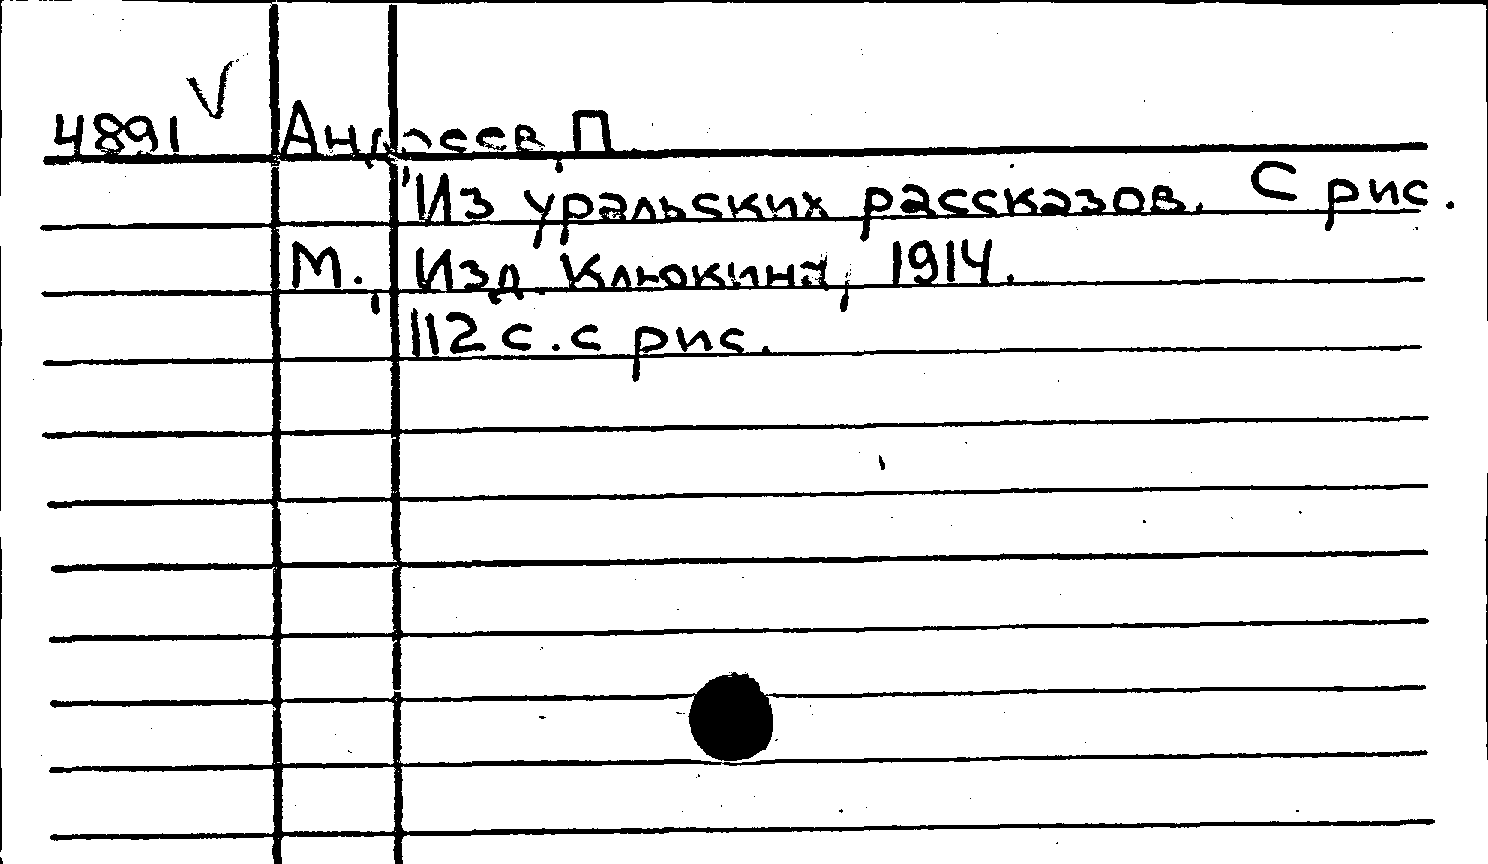 4891 √ Андреев, П.
Из уральских рассказов. С рис.
М., Изд. Клюкина, 1914.
112 с. с рис.